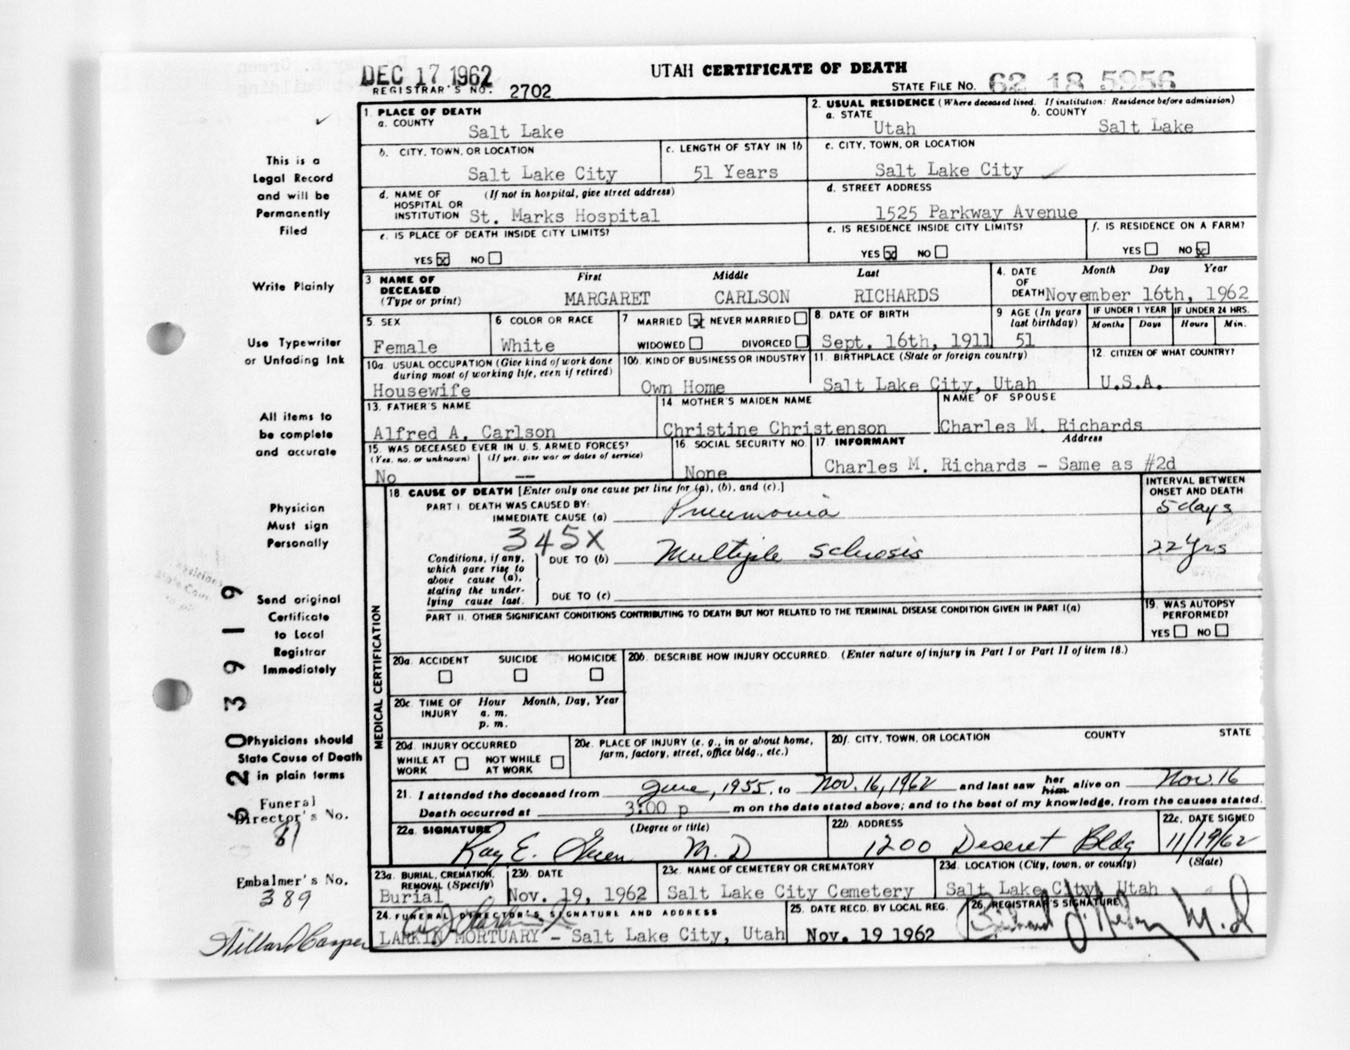 DEC 17 1962
UTAH CERTIFICATE OF DEATH
REGISTRAR'S NO. 2702
STATE FILE NO. 62 18 5956
1. PLACE OF DEATH
a. COUNTY Salt Lake
2. USUAL RESIDENCE (Where deceased lived. If institution: Residence before admission)
a. STATE Utah b. COUNTY Salt Lake
b. CITY, TOWN, OR LOCATION Salt Lake City
c. LENGTH OF STAY IN 1b 51 Years
c. CITY, TOWN, OR LOCATION Salt Lake City
d. NAME OF HOSPITAL OR INSTITUTION (If not in hospital, give street address) St. Marks Hospital
d. STREET ADDRESS 1525 Parkway Avenue
e. IS PLACE OF DEATH INSIDE CITY LIMITS?
YES X NO
e. IS RESIDENCE INSIDE CITY LIMITS?
YES X NO
f. IS RESIDENCE ON A FARM?
YES NO X
3 NAME OF DECEASED (Type or print)
First Middle Last
MARGARET CARLSON RICHARDS
4. DATE OF DEATH Month Day Year
November 16th, 1962
5. SEX Female
6 COLOR OR RACE White
7 MARRIED X NEVER MARRIED
WIDOWED DIVORCED
8 DATE OF BIRTH Sept. 16th, 1911
9 AGE (In years last birthday) 51
IF UNDER 1 YEAR Months Days
IF UNDER 24 HRS. Hours Min.
10a USUAL OCCUPATION (Give kind of work done during most of working life, even if retired) Housewife
10b. KIND OF BUSINESS OR INDUSTRY Own Home
11. BIRTHPLACE (State or foreign country) Salt Lake City, Utah
12 CITIZEN OF WHAT COUNTRY? U.S.A.
13. FATHER'S NAME Alfred A. Carlson
14 MOTHER'S MAIDEN NAME Christine Christenson
NAME OF SPOUSE Charles M. Richards
15. WAS DECEASED EVER IN U. S. ARMED FORCES?
(Yes, no, or unknown) (If yes, give war or dates of service)
No --
16 SOCIAL SECURITY NO. None
17. INFORMANT Address
Charles M. Richards - Same as #2d
18. CAUSE OF DEATH [Enter only one cause per line for (a), (b), and (c).]
INTERVAL BETWEEN ONSET AND DEATH
PART I. DEATH WAS CAUSED BY:
IMMEDIATE CAUSE (a) Pneumonia 5 days
345X
Conditions, if any, which gave rise to above cause (a), stating the underlying cause last.
DUE TO (b) Multiple Sclerosis 22 yrs
DUE TO (c)
PART II. OTHER SIGNIFICANT CONDITIONS CONTRIBUTING TO DEATH BUT NOT RELATED TO THE TERMINAL DISEASE CONDITION GIVEN IN PART I(a)
19. WAS AUTOPSY PERFORMED?
YES NO
MEDICAL CERTIFICATION
20a. ACCIDENT SUICIDE HOMICIDE
20b. DESCRIBE HOW INJURY OCCURRED. (Enter nature of injury in Part I or Part II of item 18.)
20c. TIME OF INJURY Hour Month, Day, Year
a. m.
p. m.
20d. INJURY OCCURRED
WHILE AT WORK NOT WHILE AT WORK
20e. PLACE OF INJURY (e. g., in or about home, farm, factory, street, office bldg., etc.)
20f. CITY, TOWN, OR LOCATION COUNTY STATE
21. I attended the deceased from June, 1955, to Nov. 16, 1962 and last saw her him alive on Nov. 16
Death occurred at 3:00 p m on the date stated above; and to the best of my knowledge, from the causes stated.
22a. SIGNATURE (Degree or title)
Ray E. Green M. D
22b. ADDRESS 1200 Deseret Bldg
22c. DATE SIGNED 11/19/62
23a. BURIAL, CREMATION, REMOVAL (Specify) Burial
23b. DATE Nov. 19, 1962
23c. NAME OF CEMETERY OR CREMATORY Salt Lake City Cemetery
23d. LOCATION (City, town, or county) (State)
Salt Lake City, Utah
24. FUNERAL DIRECTOR'S SIGNATURE AND ADDRESS
LARKIN MORTUARY - Salt Lake City, Utah
25. DATE RECD. BY LOCAL REG. Nov. 19 1962
26. REGISTRAR'S SIGNATURE
M.D
This is a
Legal Record
and will be
Permanently
Filed
Write Plainly
Use Typewriter
or Unfading Ink
All items to
be complete
and accurate
Physician
Must sign
Personally
Send original
Certificate
to Local
Registrar
Immediately
Physicians should
State Cause of Death
in plain terms
Funeral
Director's No.
81
Embalmer's No.
389
6203919